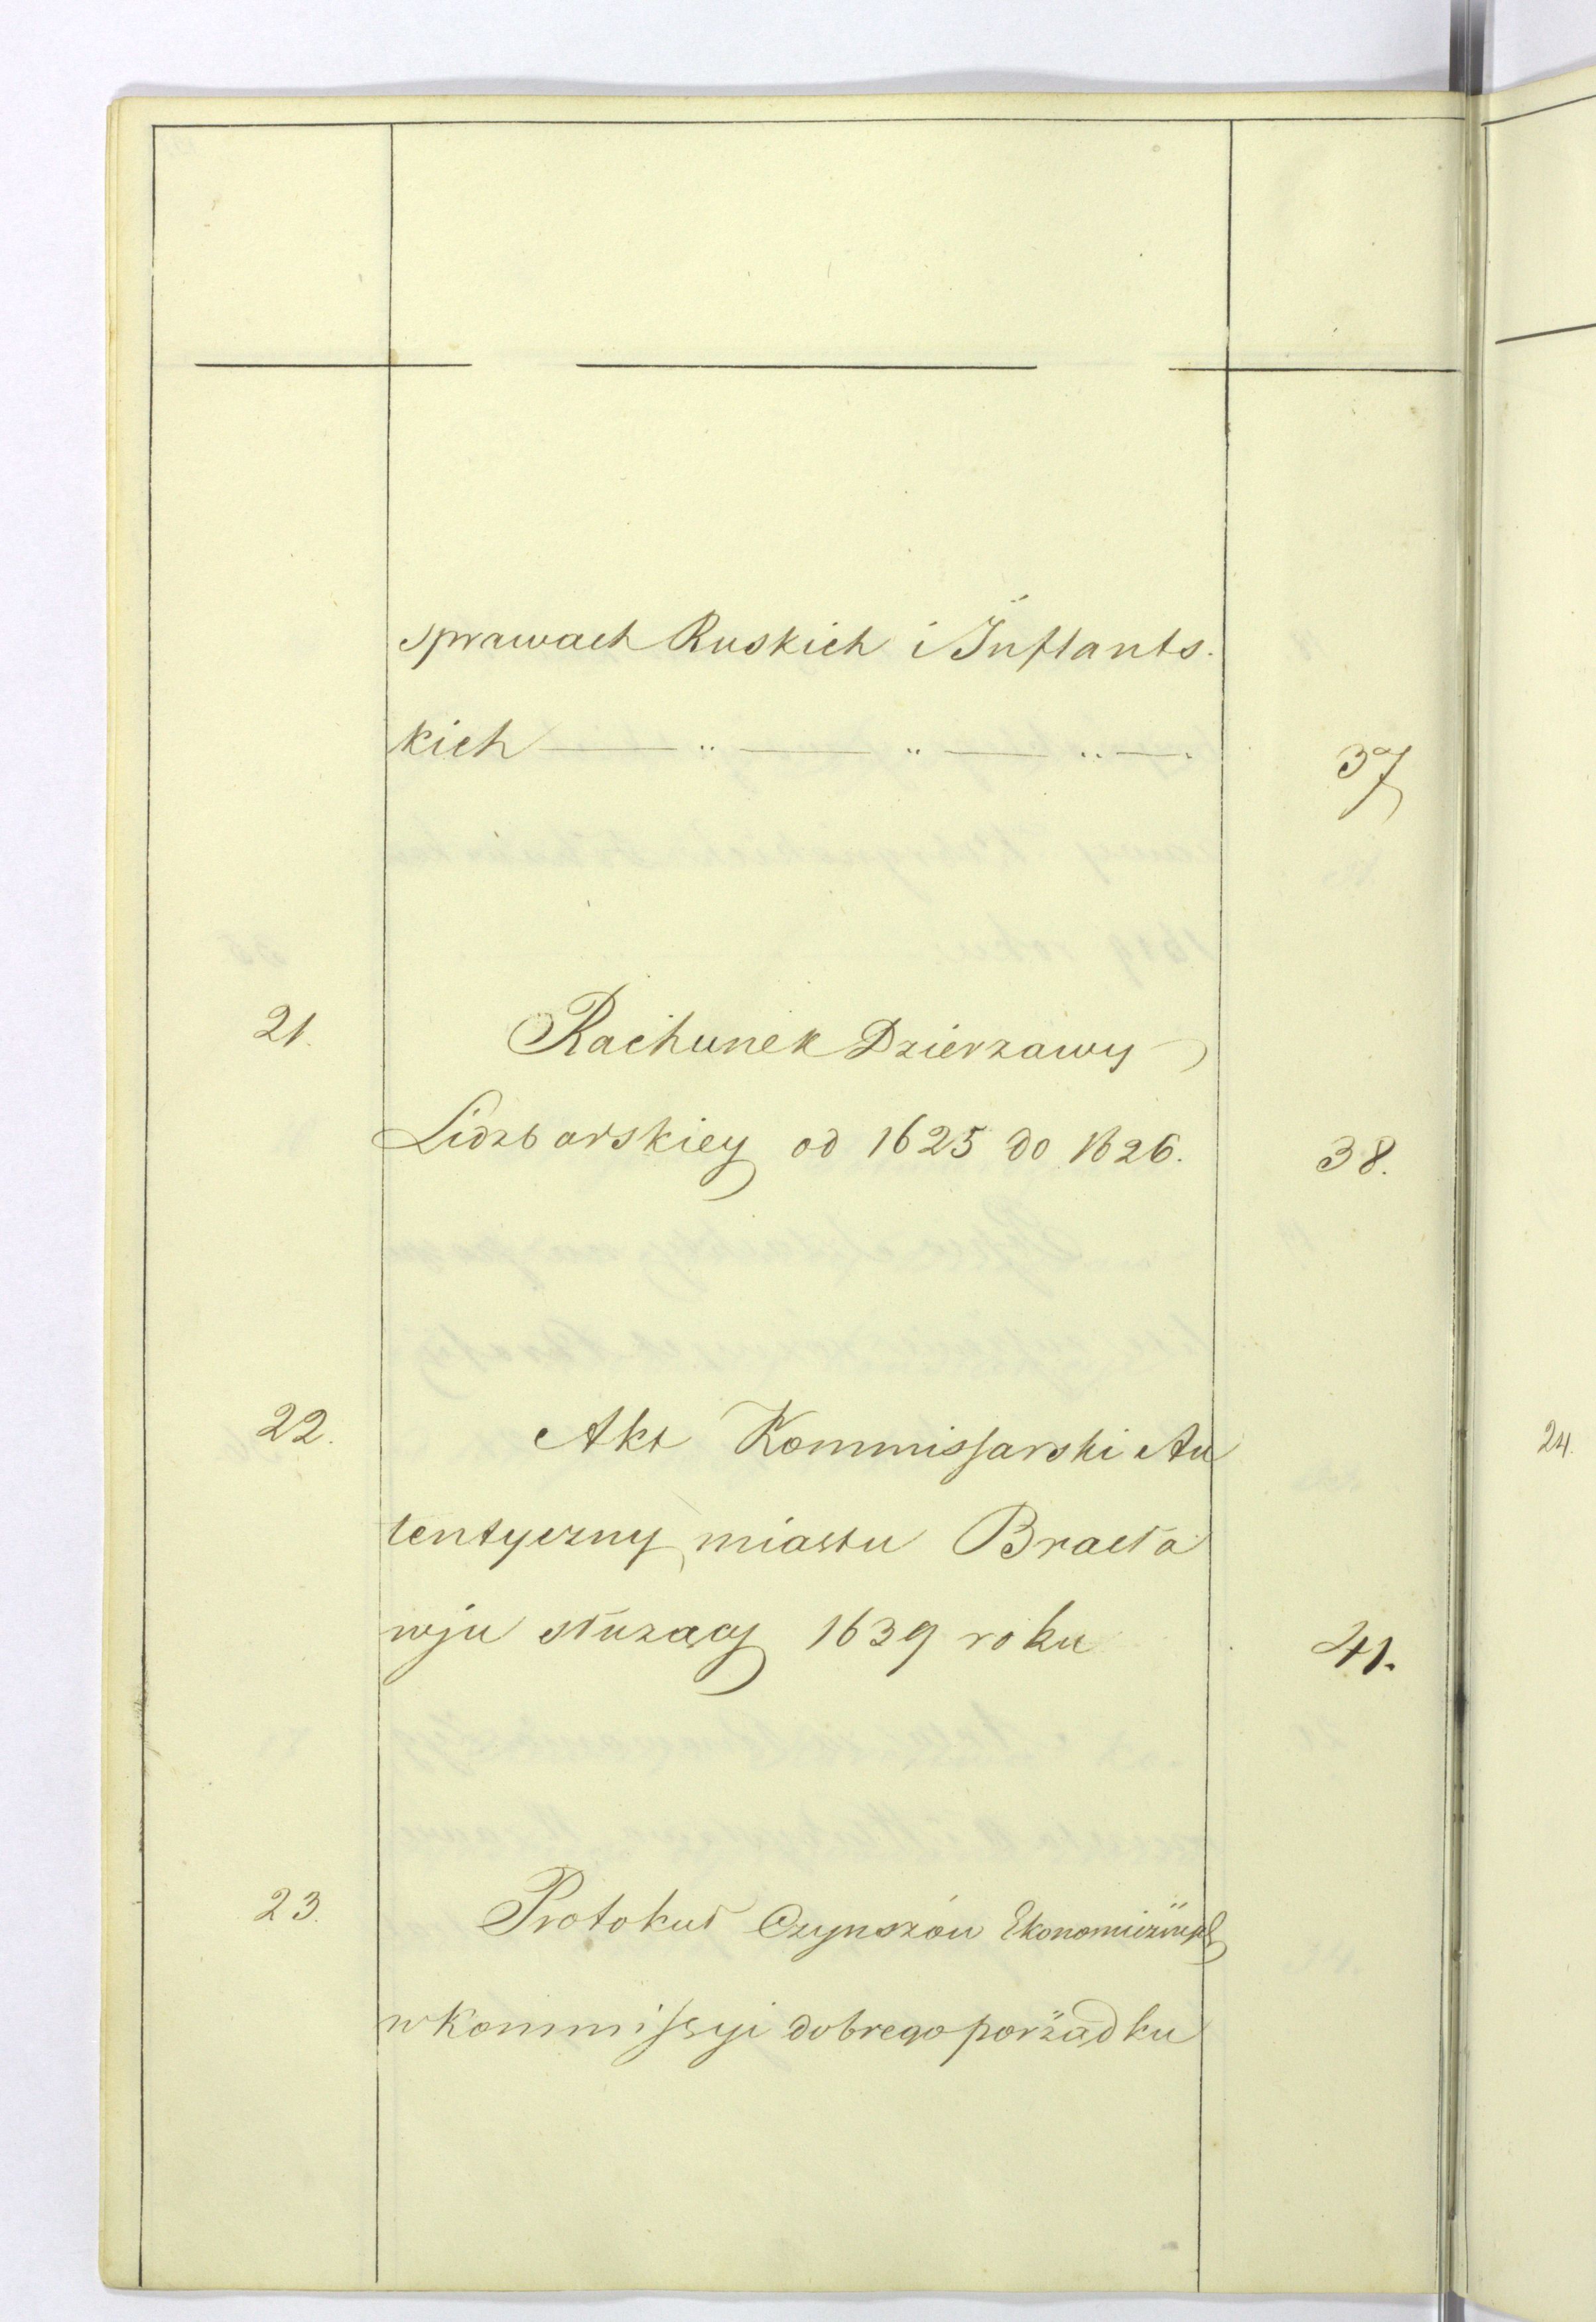 sprawach Ruskich i Inflants.
kich — „ — „ — „ —
37
21. Rachunek Dzierzawy
Lidzbarskiey od 1625 do 1626. 38.
22. Akt Kommissarski Au
tentyczny miastu Bracła
wju służący 1639 roku 41.
23. Protokuł Czynszów Ekonomicznych
w Kommissyi dobrego porządku
24.